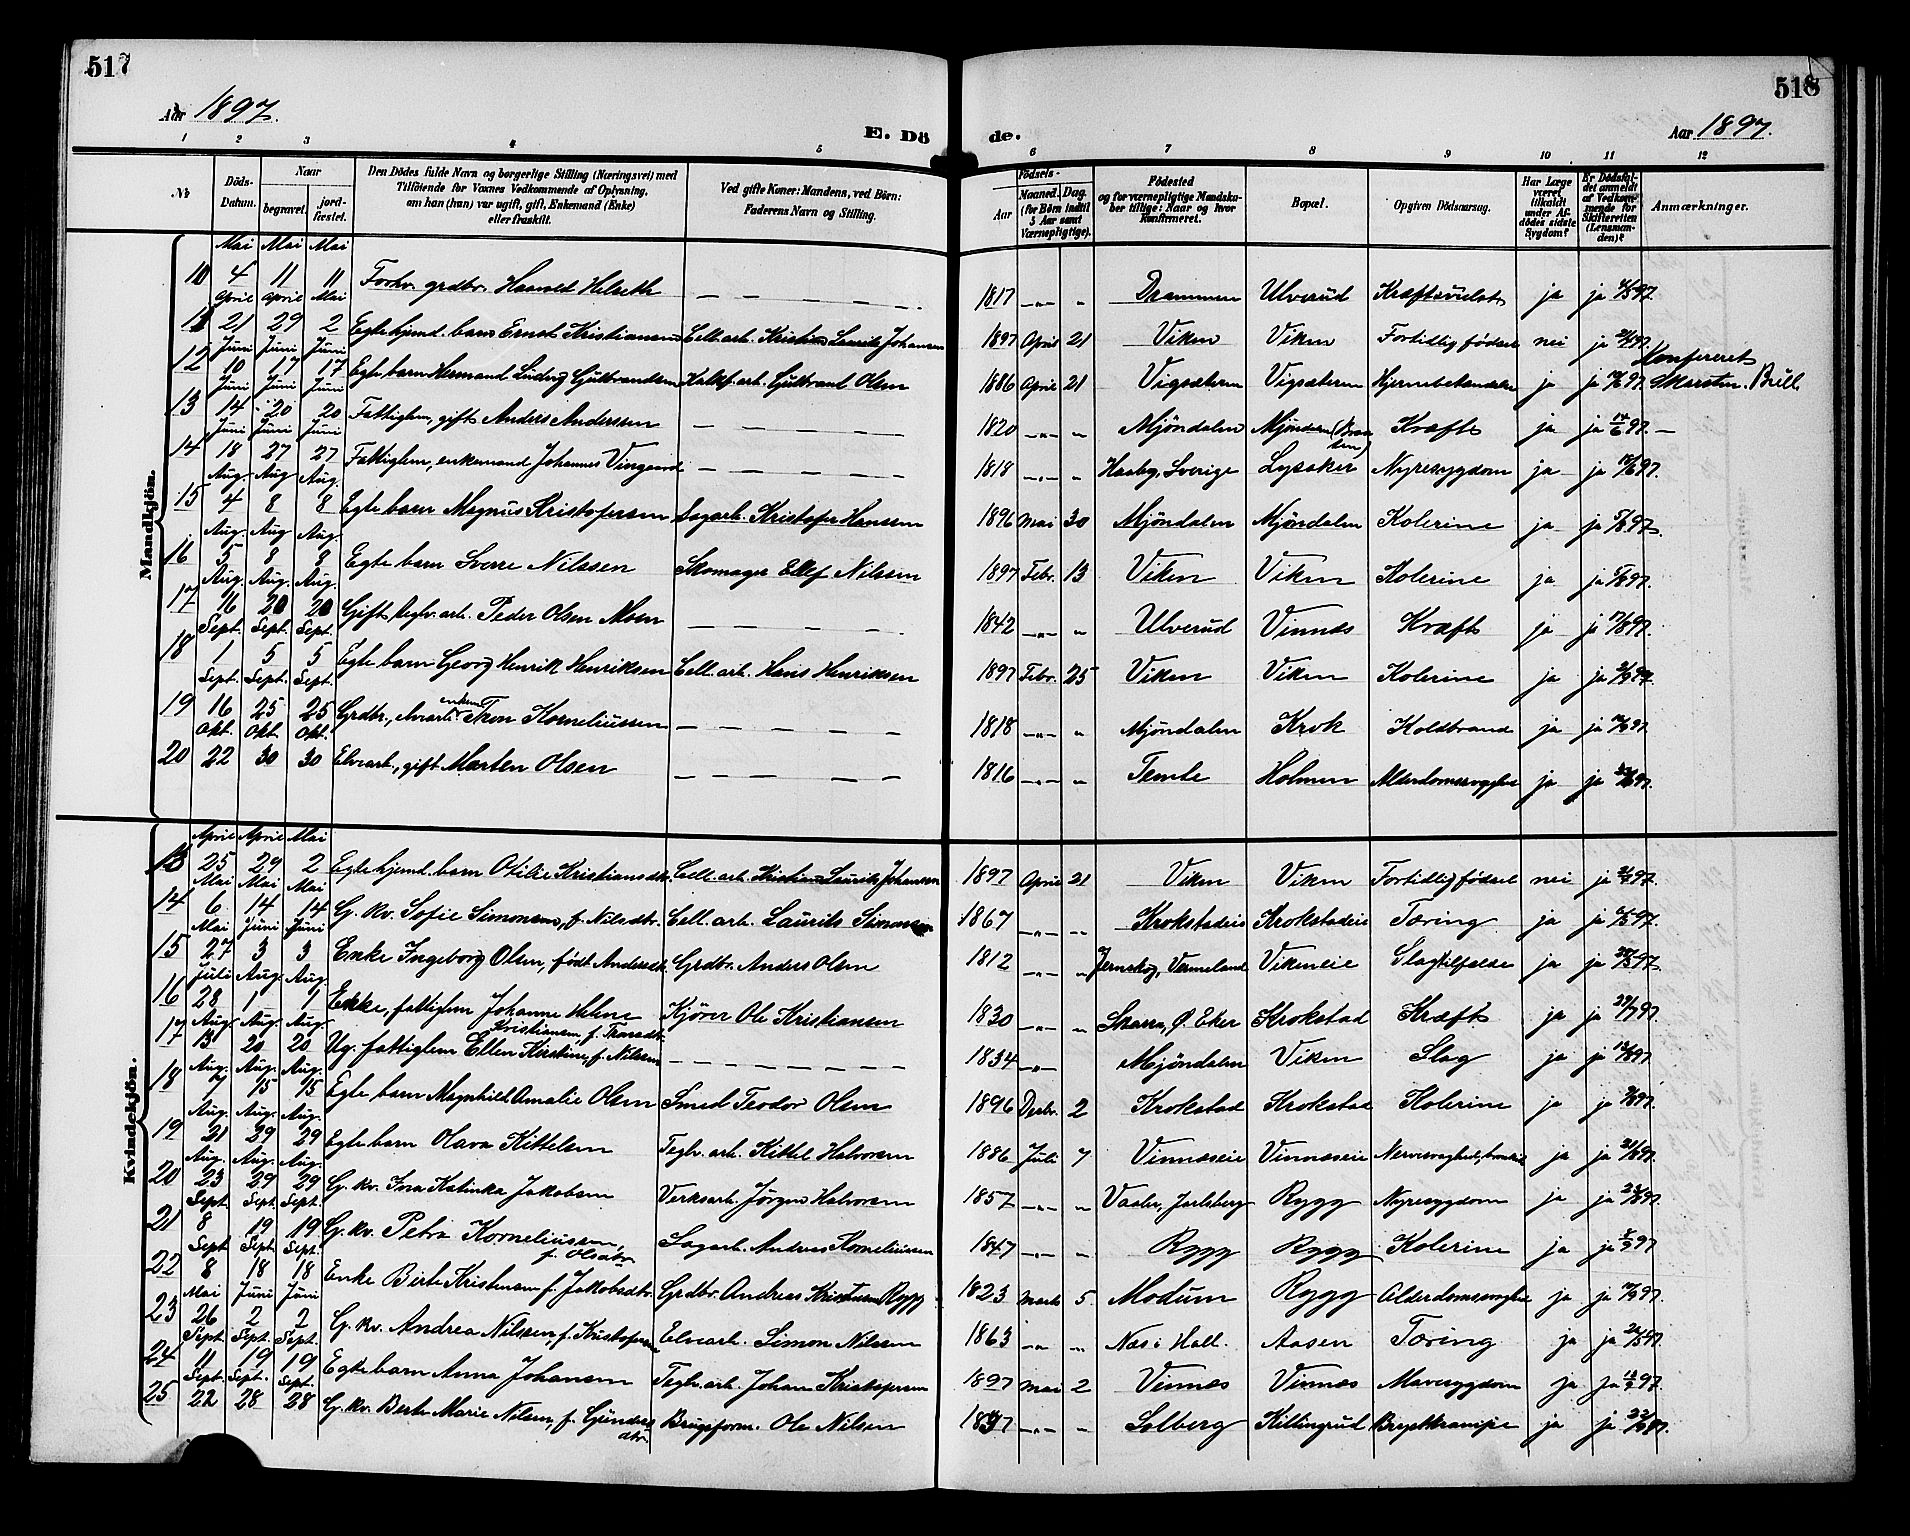 517
518
Aar 1897.
E. Dö
de.
Aar 1897.
1 2 3 4 5 6 7 8 9 10 11 12
No
Döds-Datum.
Naar begravet. jordfæstet.
Den Dödes fulde Navn og borgerlige Stilling (Næringsvei) med Tilföiende for Voxnes Vedkommende af Oplysning, om han (hun) var ugift, gift, Enkemand (Enke) eller fraskilt.
Ved gifte Koner: Mandens, ved Börn: Faderens Navn og Stilling.
Födsels-
Aar Maaned. Dag. (for Börn indtil 5 Aar samt Værnepligtige).
Födested og for værnepligtige Mandskaber tillige: Naar og hvor Konfirmeret.
Bopæl.
Opgiven Dödsaarsag.
Har Læge været tilkaldt under Afdödes sidste Sygdom?
Er Dödsfaldet anmeldt af Vedkommende for Skifteretten (Lensmanden)?
Anmærkninger.
Mandkjön.
10 Mai 4 Mai 11 Mai 11 Forhv. grdbr. Haavald Helseth — — — — 1817 —„— „ Drammen Ulverud Kræftsvulst ja ja 4/5 97.
11 April 21 April 29 Mai 2 Egte hjemd. barn Ernst Kristiansen Cell. arb. Kristian Laurits Johansen 1897 April 21 Viken Viken Fortidlig födsel nei ja 97.
12 Juni 10 Juni 17 Juni 17 Egte barn Hermand Ludvig Gulbrandsen Kalkf. arb. Gulbrand Olsen 1886 April 21 Vigsæteren Vigsæteren Hjernebetændelse ja ja 97. Konfereret Skarsten. Brill.
13 Juni 14 Juni 20 Juni 20 Fattiglem, gift Anders Anderssen — — — — 1820 —„— „ Mjöndalen Mjöndalen Kræft ja ja 14/6 97. —
14 Juni 18 Juni 27 Juni 27 Fattiglem, enkemand Johannes — — — — 1818 —„— „ Sverige Lysaker Nyresygdom ja ja 97.
15 Aug. 4 Aug 8 Aug. 8 Egte barn Magnus Kristofersen Sagarb. Kristofer Hanssen 1896 Mai 30 Mjöndalen Mjöndalen Kolerine ja ja 5/8 97.
16 Aug. 5 Aug 8 Aug. 8 Egte barn Sverre Nilssen Skomager Ellef Nilssen 1897 Febr. 13 Viken Viken Kolerine ja ja 97.
17 Aug. 16 Aug. 20 Aug. 20 Gift Teglv. arb. Peder Olsen Moen — — — — 1842 —„— „ Ulverud Vinnæs Kræft ja ja 97.
18 Sept. 1 Sept. 5 Sept. 5 Egte barn Georg Henrik Henriksen Cell. arb. Hans Henriksen 1897 Febr. 25 Viken Viken Kolerine ja ja 97.
19 Sept. 16 Sept. 25 Sept. 25 Grdbr., elvearb. enkem. Tron Korneliussen — — — — 1818 —„— „ Mjöndalen Krok Koldbrand ja ja 97.
20 Okt. 22 Okt. 30 Okt. 30 Elvearb., gift Morten Olsen — — — — 1816 —„— „ Temte Holmen Alderdomssvaghed ja ja 97.
Kvindekjön.
13 April 25 April 29 Mai 2 Egte hjemd. barn Otilie Kristiansdtr. Cell. arb. Kristian Laurits Johansen 1897 April 21 Viken Viken Fortidlig födsel nei ja 97.
14 Mai 6 Mai 14 Mai 14 G. kv. Sofie Simonsen, f. Nilsdtr. Cell. arb. Laurits Simonsen 1867 —„— „ Krokstadeie Krokstadeie Tæring ja ja 97.
15 Mai 27 Juni 3 Juni 3 Enke Ingeborg Olsen, födt Andersdtr. Grdbr. Anders Olsen 1812 —„— „ Jernskog, Vermeland Vikeneie Slagtilfælde ja ja 97.
16 Juli 28 Aug. 1 Aug. 1 Enke, fattiglem Johanne Helene Kristiansen, f. Kjörer Ole Kristiansen 1830 —„— „ Skarra, Ö. Eker Krokstad Kræft ja ja 29/7 97.
17 Aug. 13 Aug. 20 Aug. 20 Ug. fattiglem Ellen Kirstine, f. Nilssen — — — — 1834 —„— Mjöndalen Viken Slag ja ja 97.
18 Aug. 7 Aug. 15 Aug. 15 Egte barn Magnhild Amalie Olsen Smed Teodor Olsen 1896 Decbr. 2 Krokstad Krokstad Kolerine ja ja 97.
19 Aug. 21 Aug. 29 Aug. 29 Egte barn Olava Kittelsen Teglv. arb. Kittel Halvorsen 1886 Juli 7 Vinnæseie Vinnæseie ja ja 97.
20 Aug. 23 Aug. 29 Aug. 29 G. kv. Ina Katinka Jakobsen Verksarb. Jörgen Halvorsen 1857 —„— „ Vaaler, Jarlsberg Rygg Nyresygdom ja ja 97.
21 Sept. 8 Sept. 19 Sept. 19 G. kv. Petra Korneliussen, f. Olsdtr. Sagarb. Andreas Korneliussen 1847 —„— „ Rygg Rygg Kolerine ja ja 97
22 Sept 8 Sept. 18 Sept. 18 Enke Birte Kristensen f. Jakobsdtr. Grdbr. Andreas Kristensen Rygg 1823 Marts 5 Modum Rygg Alderdomssvaghed ja ja 97.
23 Mai 26 Juni 2 Juni 2 G. kv. Andrea Nilssen, f. Kristofersen Elvearb. Simon Nilssen 1863 —„— „ Næs i Hall. Aasen Tæring ja ja 97.
24 Sept. 11 Sept. 19 Sept. 19 Egte barn Anna Johansen Teglv. arb. Johan Kristofersen 1897 Mai 2 Vinnæs Vinnæs Mavesygdom ja ja 97.
25 Sept. 22 Sept. 28 Sept. 28 G. kv. Berte Marie Nilsen, f. Gundersdtr. Brugsform. Ole Nilsen —„— „ Solberg Killingrud Brystkrampe ja ja 97.